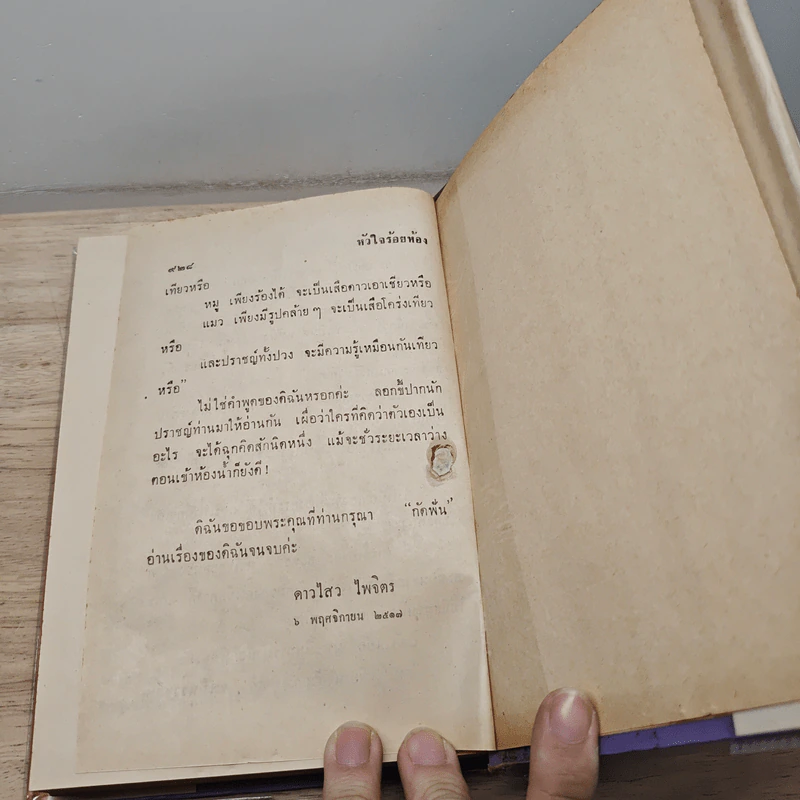 หัวใจร้อยห้อง
๙๒๘
เทียวหรือ
หมู เพียงร้องได้ จะเป็นเสือดาวเอาเชียวหรือ
แมว เพียงมีรูปคล้าย ๆ จะเป็นเสือโคร่งเทียว
หรือ
และปราชญ์ทั้งปวง จะมีความรู้เหมือนกันเทียว
หรือ"
ไม่ใช่คำพูดของดิฉันหรอกค่ะ ลอกขี้ปากนัก
ปราชญ์ท่านมาให้อ่านกัน เผื่อว่าใครที่คิดว่าตัวเองเป็น
อะไร จะได้ฉุกคิดสักนิดหนึ่ง แม้จะชั่วระยะเวลาว่าง
ตอนเข้าห้องน้ำก็ยังดี!
ดิฉันขอขอบพระคุณที่ท่านกรุณา "กัดฟัน"
อ่านเรื่องของดิฉันจนจบค่ะ
ดาวไสว ไพจิตร
๖ พฤศจิกายน ๒๕๑๗